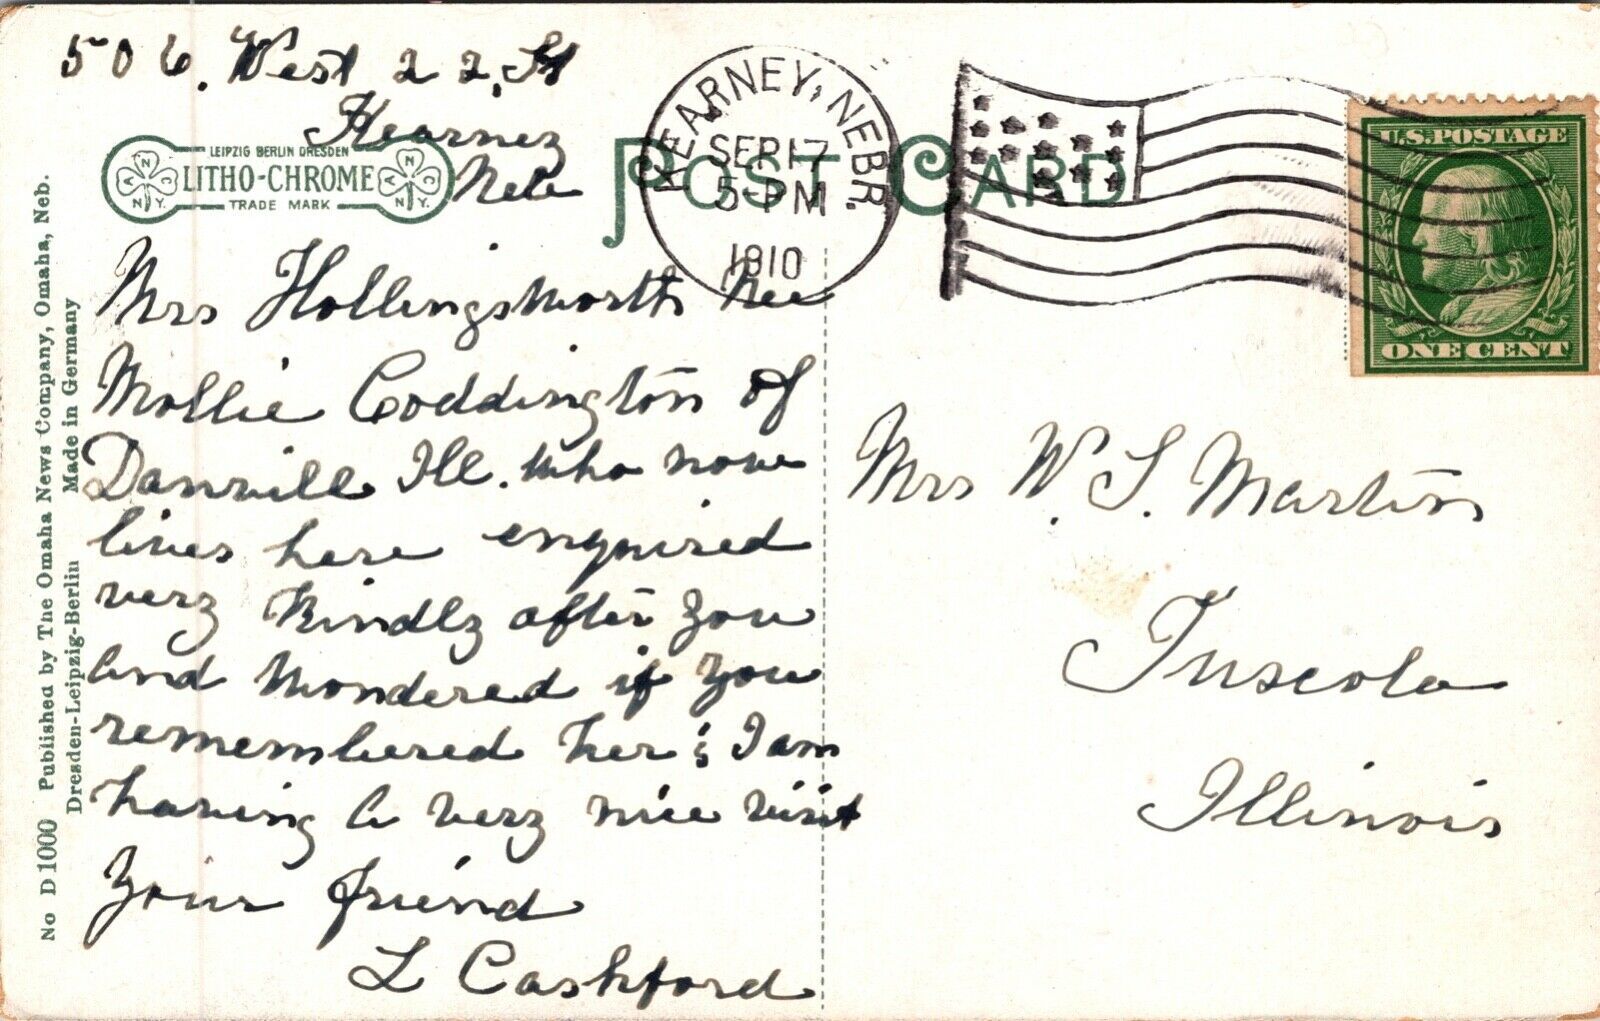 506. West 22, St
Kearney
Neb
LEIPZIG BERLIN DRESDEN
LITHO-CHROME
TRADE MARK
N N
A C
N.Y.
N N
A C
N.Y.
POST CARD
KEARNEY, NEBR.
SEP 17
5-PM
1910
U.S. POSTAGE
ONE CENT
Mrs Hollingsworth Nee
Mollie Coddington of
Danville Ill. who now
lives here enquired
very kindly after you
and wondered if you
remembered her; I am
having a very nice visit
Your friend
L Cashford
Mrs W. S. Martin
Tuscola
Illinois
No D1000 Published by The Omaha News Company, Omaha, Neb.
Dresden-Leipzig-Berlin Made in Germany